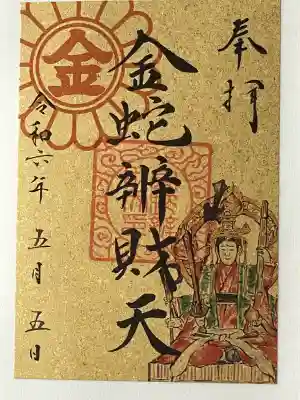 奉拝
金蛇辨財天
令和六年五月五日
金